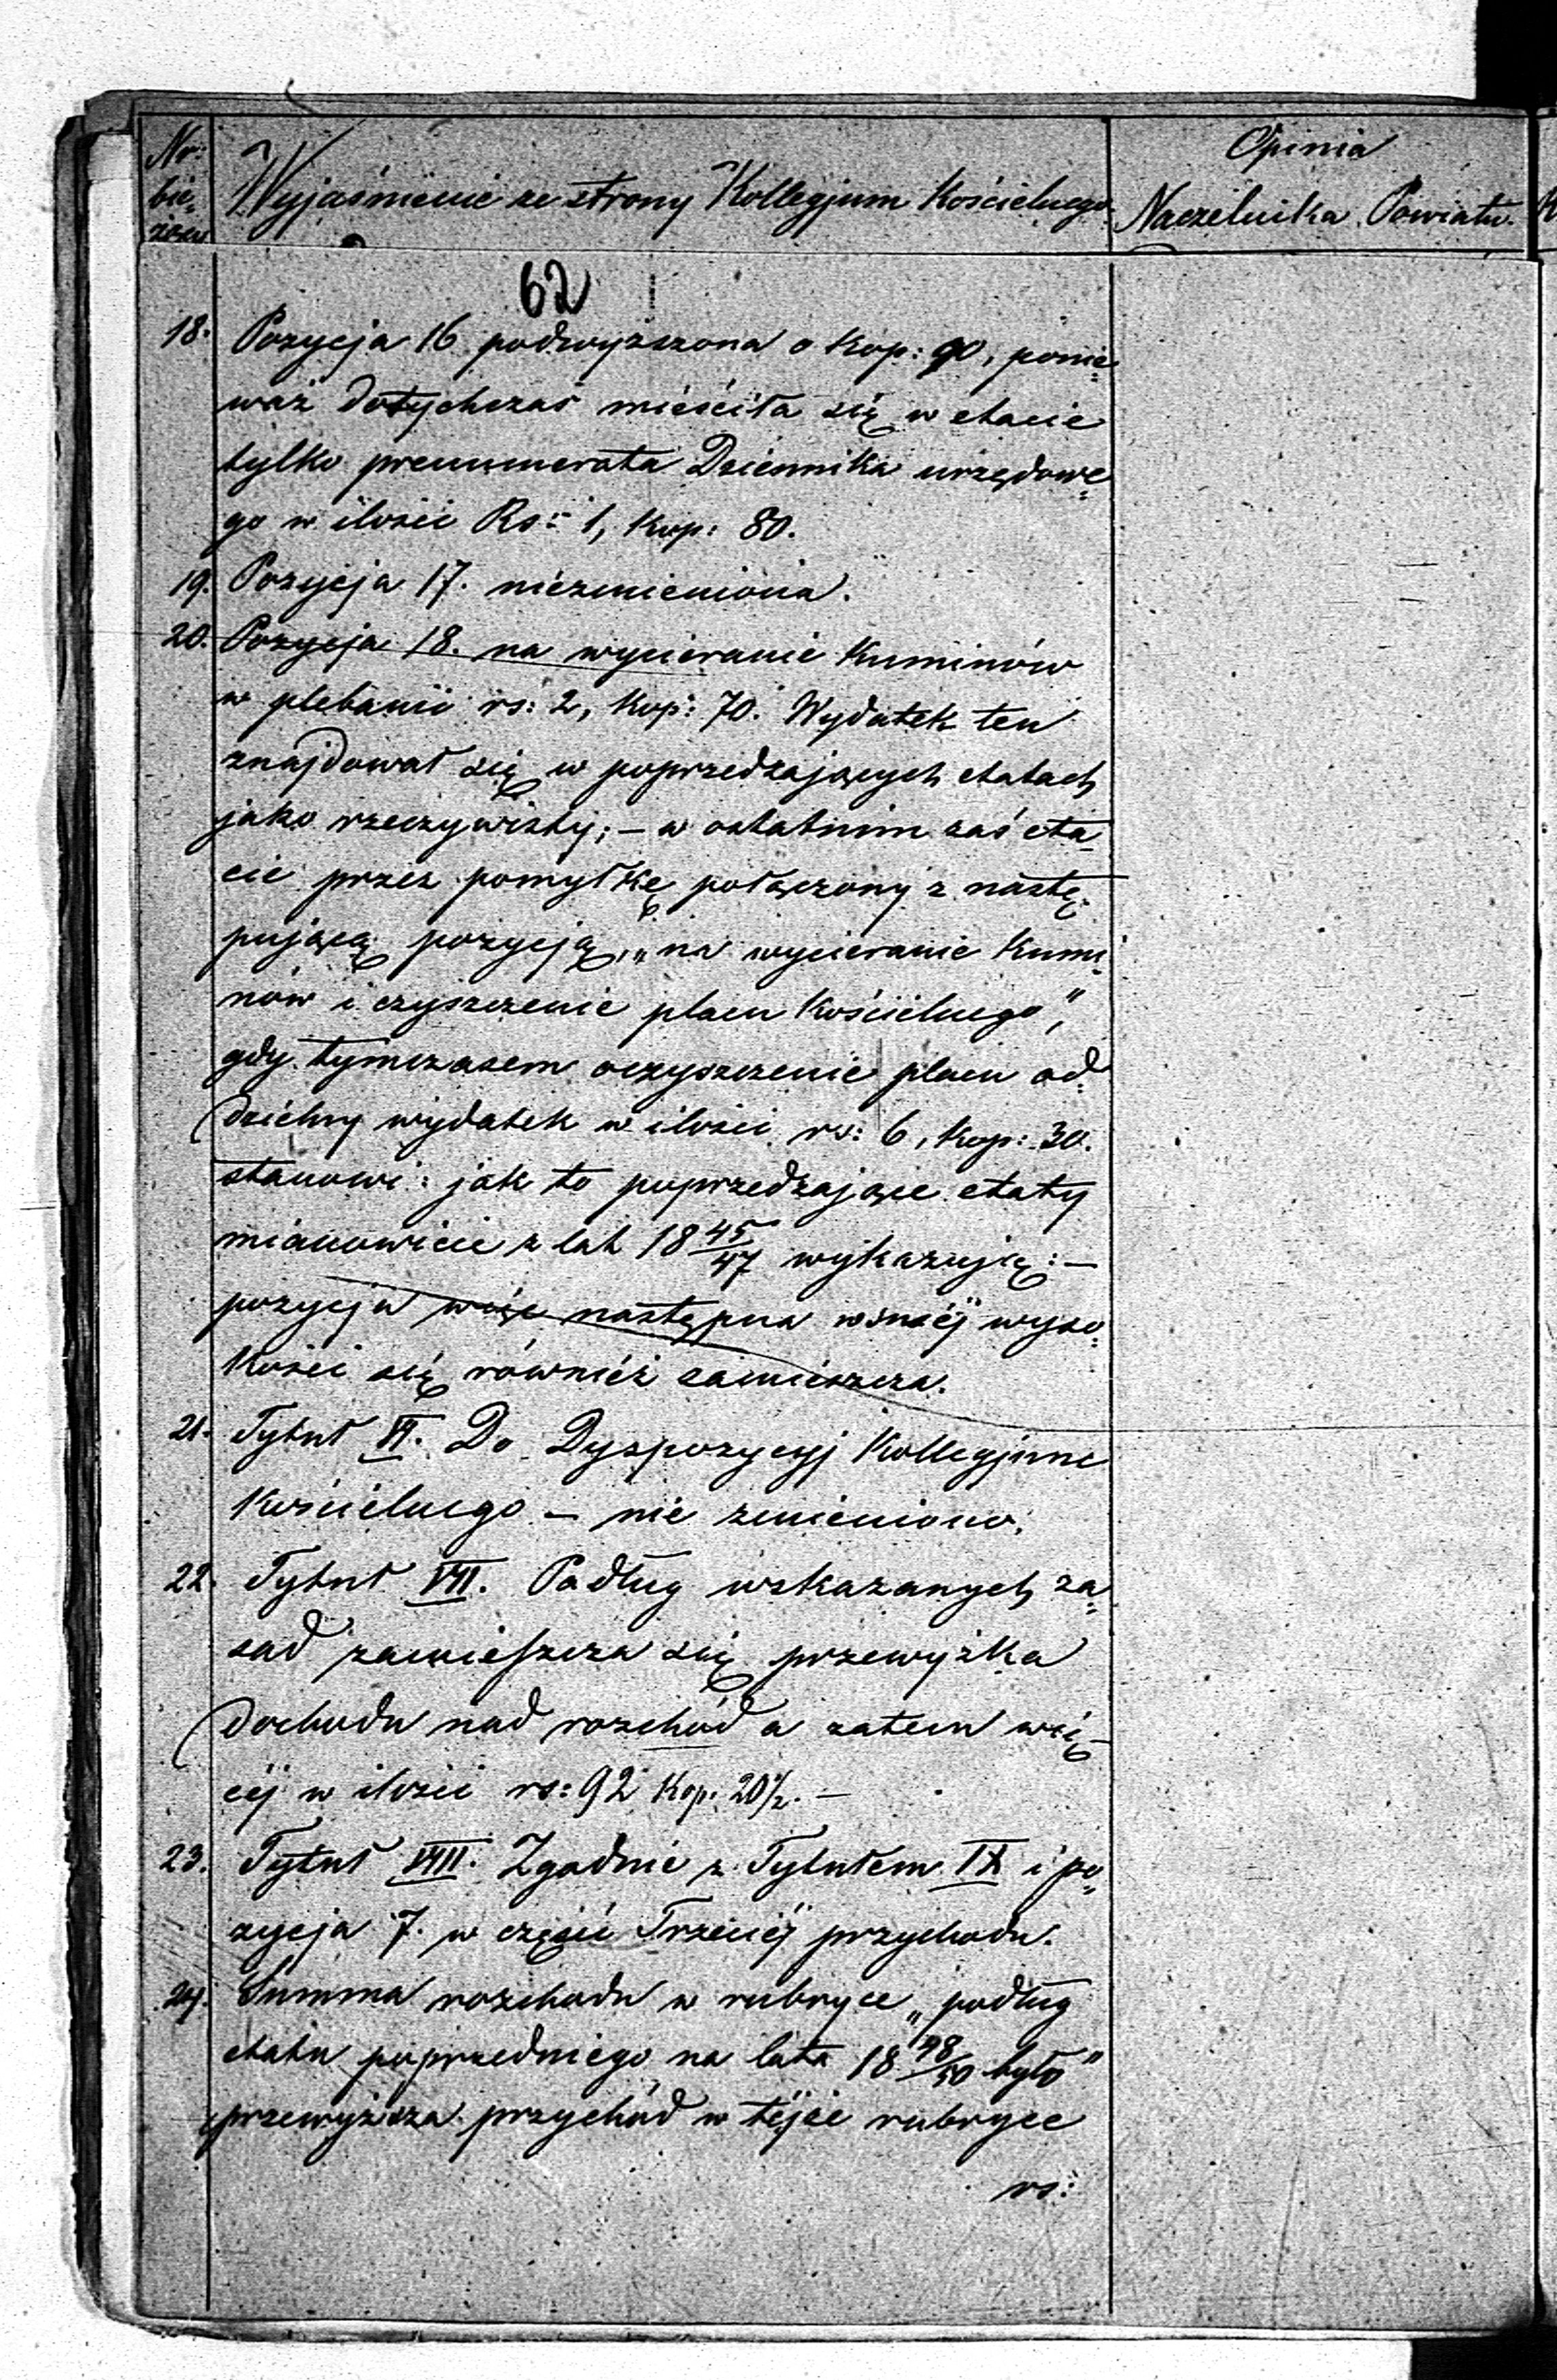 Nr:
bie-
żący
Wyjaśnienie ze strony Kollegjum Kościelnego
Opinia
Naczelnika Powiatu.
62
18. Pozycja 16 podwyższona o Kop: 90, ponie-
waż dotychczas mieściła się w etacie
tylko prenumerata Dziennika urzędowe-
go w ilości Rs: 1, Kop: 80.
19. Pozycja 17. niezmieniona.
20. Pozycja 18. na wycieranie Kuminów
w plebanii rs: 2, Kop: 70. Wydatek ten
znajdował się w poprzedzających etatach
jako rzeczywisty; – w ostatnim zaś eta-
cie przez pomyłkę połączony z nastę-
pującą pozycją, „na wycieranie Kumi-
nów i czyszczenie placu Kościelnego",
gdy tymczasem oczyszczenie placu od-
dzielny wydatek w ilości rs: 6, Kop: 30.
stanowi: jak to poprzedzające etaty
mianowicie z lat 18 45/47 wykazują: –
pozycja więc następna w śniej wyso-
kości się również zamieszcza.
21. Tytuł VI. Do Dyspozycyj Kollegjum
Kościelnego – nie zmieniono.
22. Tytuł VII. Podług wskazanych za-
sad zamieszcza się przewyżka
dochodu nad rozchód a zatem wię-
cej w ilości rs: 92 Kop: 20½. –
23. Tytuł VIII. Zgodnie z Tytułem IX i po-
zycja 7. w części Trzeciej przychodu.
24. Summa rozchodu w rubryce „podług
etatu poprzedniego na lata 18 48/50 było"
przewyższa przychód w tejże rubryce
rs: